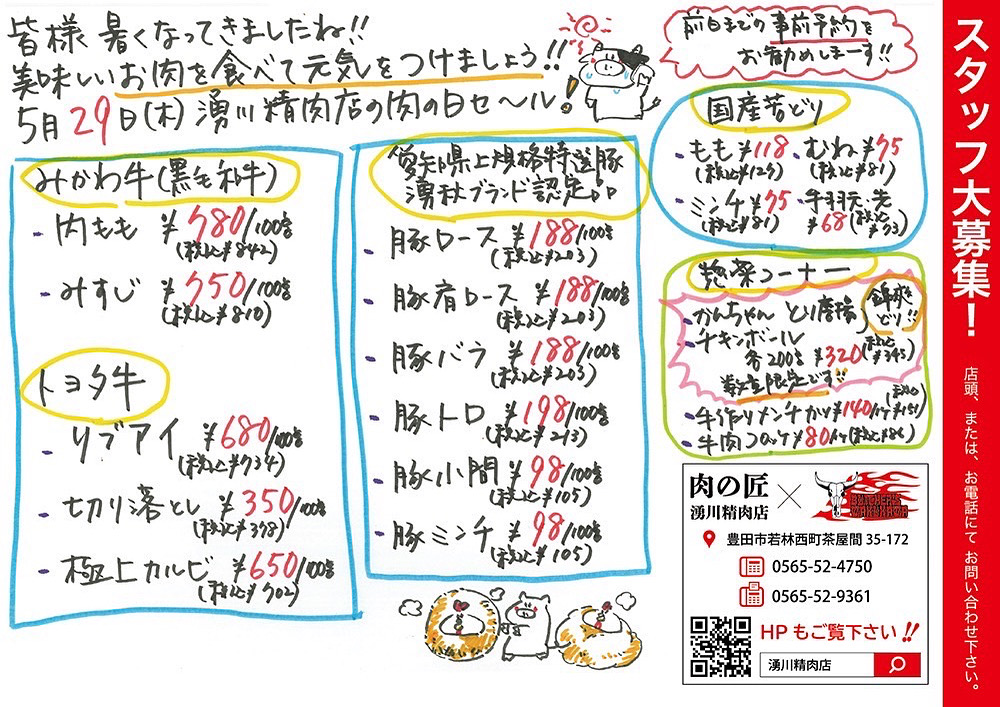 皆様 暑くなってきましたね!!
美味しいお肉を食べて元気をつけましょう!!
5月29日(木) 湧川精肉店の肉の日セール
前日までの事前予約を
お勧めしまーす!!
みかわ牛(黒毛和牛)
- 内もも ¥780/100g
(税込¥842)
- みすじ ¥750/100g
(税込¥810)
トヨタ牛
- リブアイ ¥680/100g
(税込¥734)
- 切り落とし ¥350/100g
(税込¥378)
- 極上カルビ ¥650/100g
(税込¥702)
愛知県上規格特選豚
湧秋ブランド認定品
- 豚ロース ¥188/100g
(税込¥203)
- 豚肩ロース ¥188/100g
(税込¥203)
- 豚バラ ¥188/100g
(税込¥203)
- 豚トロ ¥198/100g
(税込¥213)
- 豚小間 ¥98/100g
(税込¥105)
- 豚ミンチ ¥98/100g
(税込¥105)
国産若どり
・もも ¥118 ・むね ¥75
(税込¥127) (税込¥81)
・ミンチ ¥75 ・手羽元、先
(税込¥81) ¥68 (税込¥73)
惣菜コーナー
錦爽どり!!
・かんちゃん とり唐揚
・チキンボール
各200g ¥320 (税込¥345)
数量限定です!!
・手作りメンチカツ ¥140/ケ (税込¥151)
・牛肉コロッケ ¥80/ケ (税込¥86)
肉の匠
湧川精肉店
×
BUTCHER'S
WAKUKAWA
豊田市若林西町茶屋間 35-172
0565-52-4750
0565-52-9361
HP もご覧下さい!!
湧川精肉店
スタッフ大募集!
店頭、または、お電話にて お問い合わせ下さい。